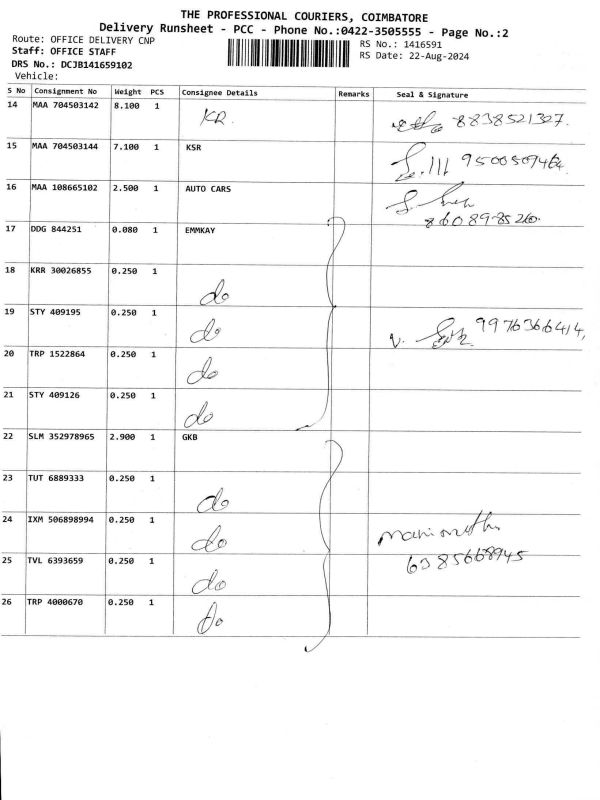 THE PROFESSIONAL COURIERS, COIMBATORE
Delivery Runsheet - PCC - Phone No.:0422-3505555 - Page No.:2
Route: OFFICE DELIVERY CNP
RS No.: 1416591
Staff: OFFICE STAFF
RS Date: 22-Aug-2024
DRS No.: DCJB141659102
Vehicle:
S No Consignment No Weight PCS Consignee Details Remarks Seal & Signature
14 MAA 704503142 8.100 1 KR. 8838521327.
15 MAA 704503144 7.100 1 KSR
16 MAA 108665102 2.500 1 AUTO CARS
17 DDG 844251 0.080 1 EMMKAY
18 KRR 30026855 0.250 1 do
19 STY 409195 0.250 1 do 9976366414,
20 TRP 1522864 0.250 1 do
21 STY 409126 0.250 1 do
22 SLM 352978965 2.900 1 GKB
23 TUT 6889333 0.250 1 do
24 IXM 506898994 0.250 1 do
25 TVL 6393659 0.250 1 do
26 TRP 4000670 0.250 1 do